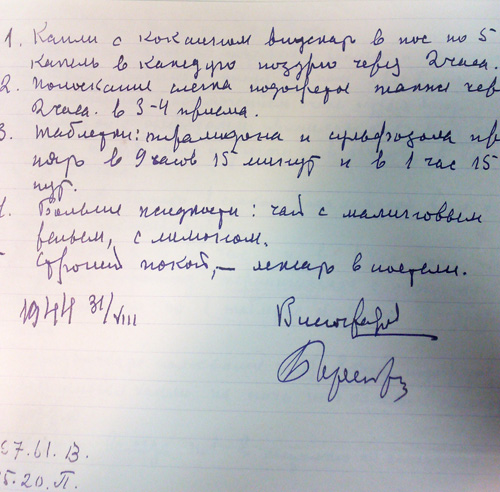 1. Капли с кокаином впускать в нос по 5
капель в каждую ноздрю через 2 часа.
2. Полоскание слегка подогретое также чер
2 часа. в 3-4 приема.
3. Таблетки: пирамидона и сульфозола пр
нять в 9 часов 15 минут и в 1 час 15
нут.
4. Больше жидкости: чай с малиновым
реньем, с лимоном.
Строгий покой, – лежать в постели.
1944 31/VIII
Виноградов
7.61. В.
5.20. П.